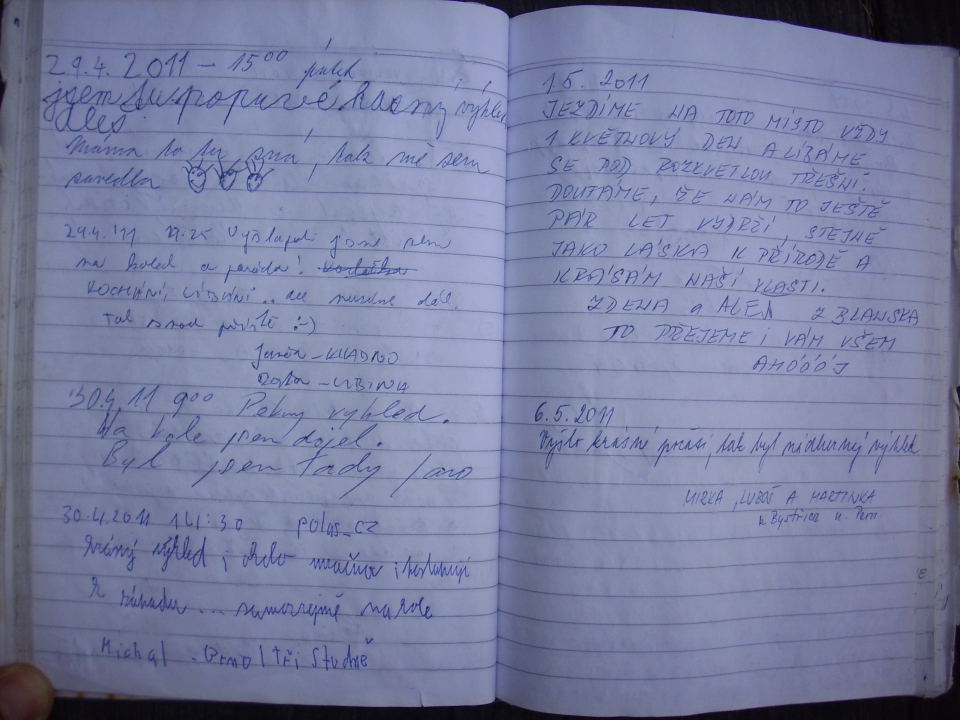 29.4.2011 – 15⁰⁰ pátek
jsem tu poprvé krásný výhled
Aleš
Máma to tu zná, tak mě sem
zavedla
29.4.'11 jsme sem
na a paráda!
KOCHÁNÍ, LÍBÁNÍ .. ale musíme dál.
Tak snad příště :-)
– KLADNO
30.4.11 9⁰⁰ Pekny vyhled.
Na kole jsem dojel.
Byl jsem tady Jaro
30.4.2011 14:30 polas.cz
výhled i
z ... samozrejmě na kole
Michal - Brno / Tři Studně
1.5. 2011
JEZDÍME NA TOTO MÍSTO VŽDY
1 KVĚTNOVÝ DEN A LÍBÁME
SE POD ROZKVETLOU TŘEŠNÍ.
DOUFÁME, ŽE NÁM TO JEŠTĚ
PÁR LET VYDRŽÍ, STEJNĚ
JAKO LÁSKA K PŘÍRODĚ A
KRÁSÁM NAŠÍ VLASTI.
ZDENA a ALEŠ Z BLANSKA
TO PŘEJEME i VÁM VŠEM
AHÓÓÓJ
6.5.2011
Vyšlo krásné počasí, tak byl nádherný výhled
MIRKA, LUBOŠ A MARTINKA
z Bystřice n. Pern